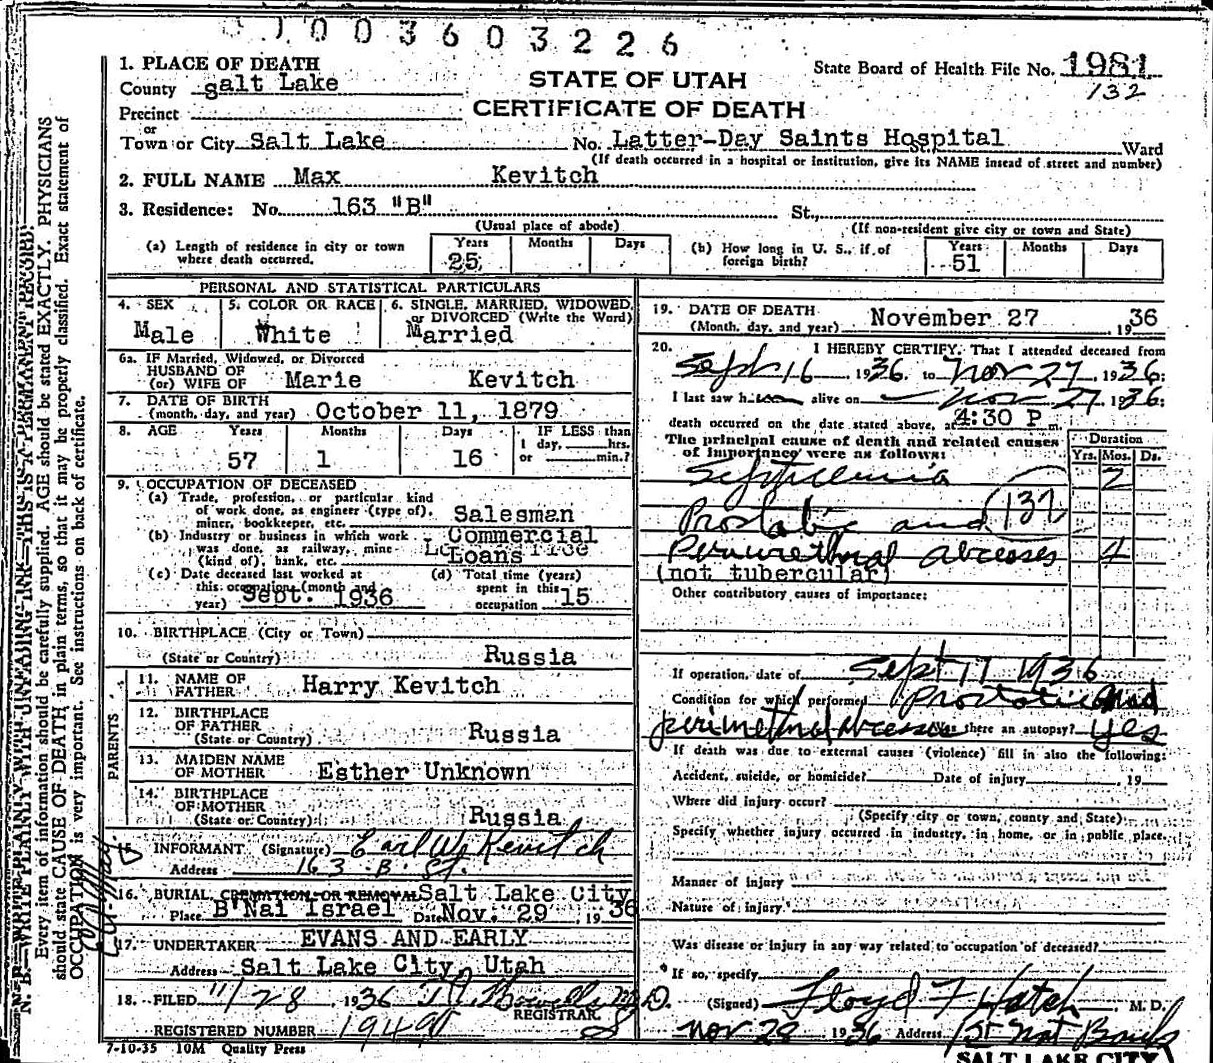 003603226
1. PLACE OF DEATH
County Salt Lake
STATE OF UTAH
CERTIFICATE OF DEATH
State Board of Health File No. 1981
132
Precinct
or
Town or City Salt Lake No. Latter-Day Saints Hospital Ward
(If death occurred in a hospital or institution, give its NAME instead of street and number)
2. FULL NAME Max Kevitch
3. Residence: No. 163 "B" St.,
(Usual place of abode) (If non-resident give city or town and State)
(a) Length of residence in city or town where death occurred. Years 25 Months Days
(b) How long in U. S., if of foreign birth? Years 51 Months Days
PERSONAL AND STATISTICAL PARTICULARS
4. SEX Male
5. COLOR OR RACE White
6. SINGLE, MARRIED, WIDOWED, or DIVORCED (Write the Word) Married
6a. IF Married, Widowed, or Divorced
HUSBAND OF
(or) WIFE OF Marie Kevitch
7. DATE OF BIRTH
(month, day, and year) October 11, 1879
8. AGE Years 57 Months 1 Days 16 IF LESS than 1 day, hrs. or min.?
9. OCCUPATION OF DECEASED
(a) Trade, profession, or particular kind
of work done, as engineer (type of),
miner, bookkeeper, etc. Salesman
(b) Industry or business in which work
was done, as railway, mine
(kind of), bank, etc. Commercial Loans
(c) Date deceased last worked at
this occupation (month and
year) Sept. 1936
(d) Total time (years)
spent in this
occupation 15
10. BIRTHPLACE (City or Town)
(State or Country) Russia
PARENTS
11. NAME OF
FATHER Harry Kevitch
12. BIRTHPLACE
OF FATHER
(State or Country) Russia
13. MAIDEN NAME
OF MOTHER Esther Unknown
14. BIRTHPLACE
OF MOTHER
(State or Country) Russia
INFORMANT (Signature) Earl W. Kevitch
Address 163 B St.
16. BURIAL, CREMATION OR REMOVAL Salt Lake City
Place B'Nai Israel Date Nov. 29 1936
17. UNDERTAKER EVANS AND EARLY
Address Salt Lake City, Utah
18. FILED 11/28 1936
REGISTRAR.
REGISTERED NUMBER 1949
7-10-35 10M Quality Press
19. DATE OF DEATH
(Month, day, and year) November 27, 1936
20. I HEREBY CERTIFY, That I attended deceased from
Sept 16 1936 to Nov 27, 1936;
I last saw him alive on Nov 27, 1936;
death occurred on the date stated above, at 4:30 P m.
The principal cause of death and related causes
of importance were as follows:
Duration
Yrs. Mos. Ds.
Septicemia 2
Prostatic and (132)
Periurethral abcesses 4
(not tubercular)
Other contributory causes of importance:
If operation, date of Sept 17 1936
Condition for which performed Prostatic and
periurethral abcesses Was there an autopsy? Yes
If death was due to external causes (violence) fill in also the following:
Accident, suicide, or homicide? Date of injury 19
Where did injury occur?
(Specify city or town, county and State)
Specify whether injury occurred in industry, in home, or in public place.
Manner of injury
Nature of injury
Was disease or injury in any way related to occupation of deceased?
If so, specify
(Signed) Floyd F Hatch M. D.
Nov 28 1936 Address 1st Nat Bank
SALT LAKE CITY
N. B.—WRITE PLAINLY WITH UNFADING INK—THIS IS A PERMANENT RECORD.
Every item of information should be carefully supplied. AGE should be stated EXACTLY. PHYSICIANS
should state CAUSE OF DEATH in plain terms, so that it may be properly classified. Exact statement of
OCCUPATION is very important. See instructions on back of certificate.